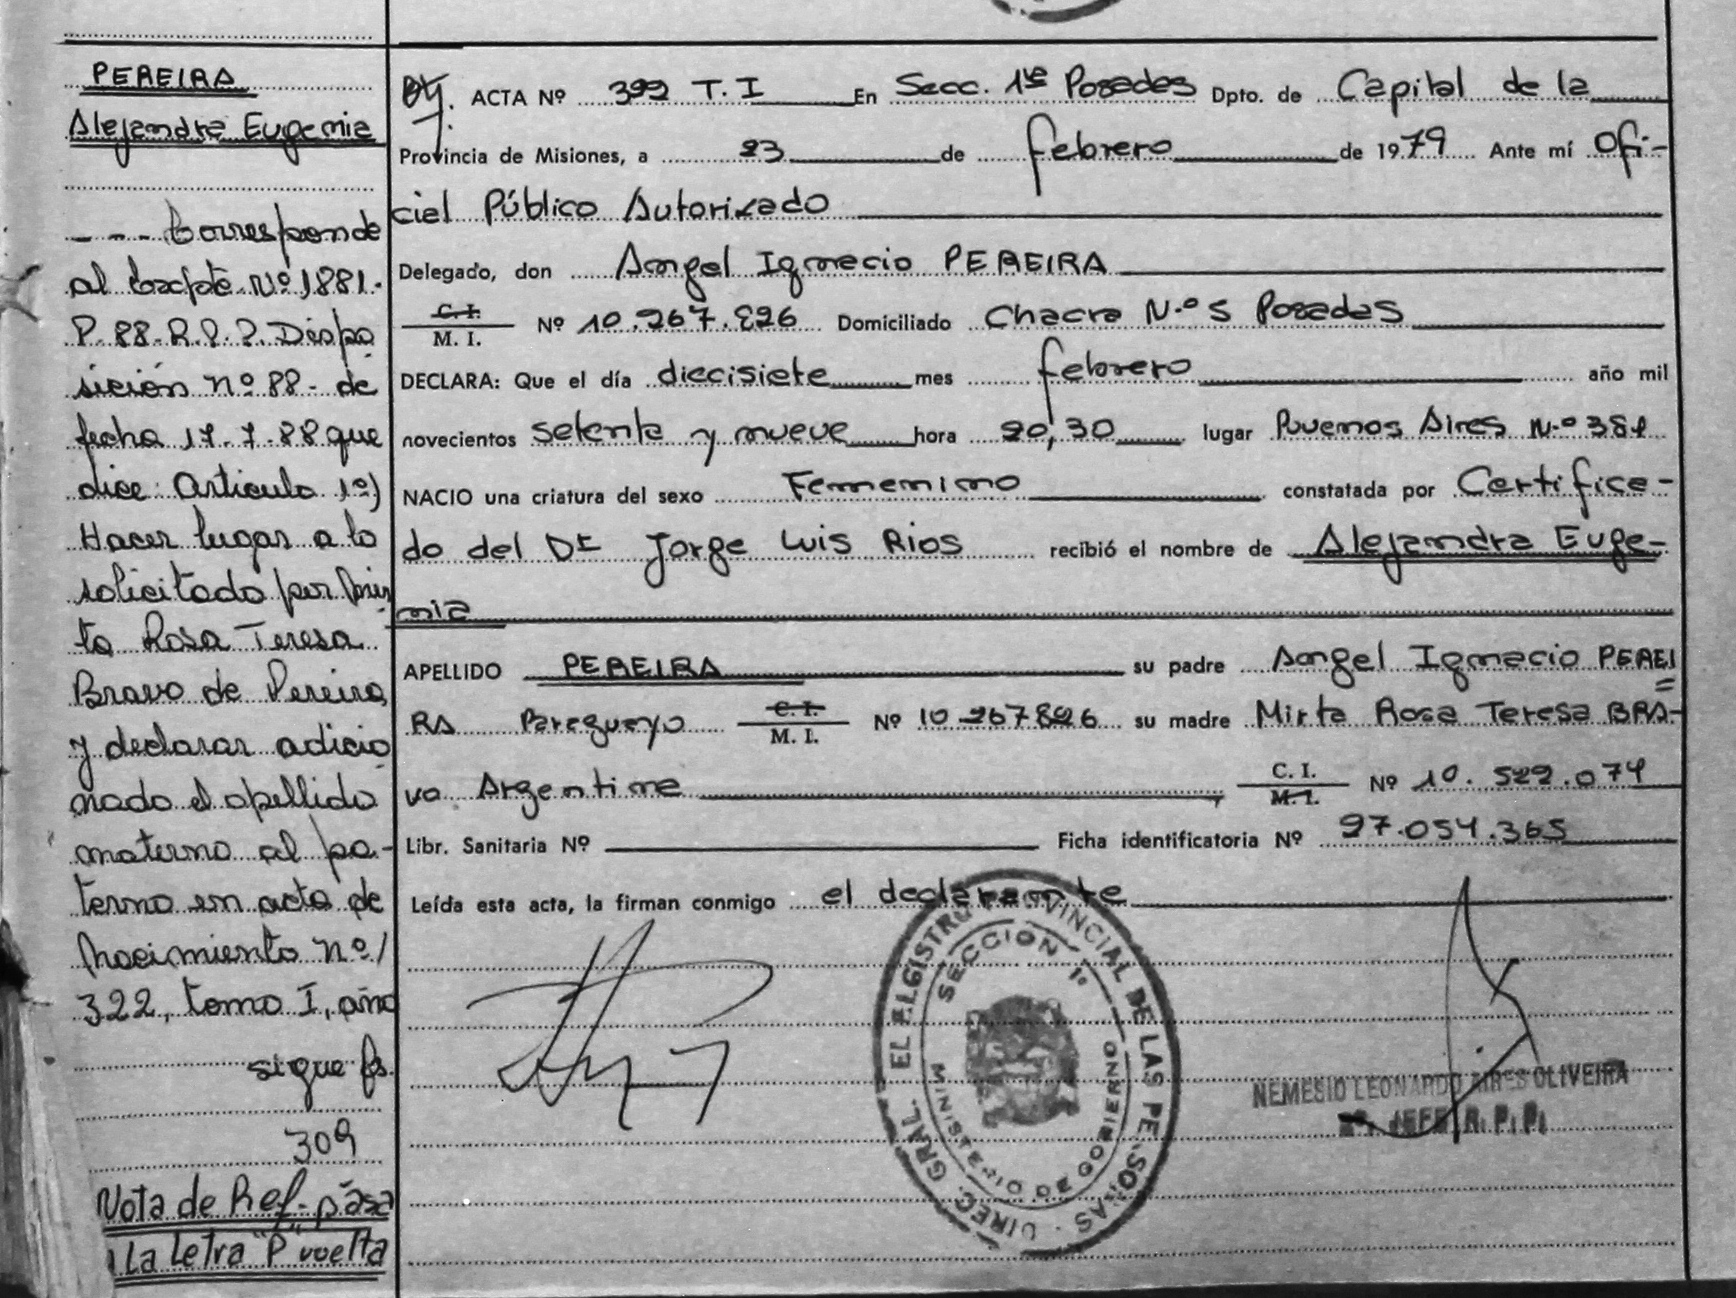 PEREIRA
Alejandra Eugenia
- - - Corresponde
al Expte. Nº 1881-
P-88-R.P.P. Dispo
sición nº 88- de
fecha 17-7-88 que
dice: Artículo 1º)
Hacer lugar a lo
solicitado por Mir
ta Rosa Teresa
Bravo de Pereira,
y declarar adicio
nado el apellido
materno al pa-
terno en acta de
Nacimiento nº
322, tomo I, año
sigue fs.
309
Nota de Ref. pasa
a La Letra "P" vuelta
ACTA Nº 322 T. I En Secc. 1ra Posadas Dpto. de Capital de la
Provincia de Misiones, a 23 de febrero de 1979 Ante mí Ofi-
cial Público Autorizado
Delegado, don Angel Ignacio PEREIRA
C. I.
M. I. Nº 10.267.826 Domiciliado Chacra N.º 5 Posadas
DECLARA: Que el día diecisiete mes febrero año mil
novecientos setenta y nueve hora 20,30 lugar Buenos Aires N.º 381
NACIO una criatura del sexo Femenino constatada por Certifica-
do del Dr Jorge Luis Rios recibió el nombre de Alejandra Euge-
nia
APELLIDO PEREIRA su padre Angel Ignacio PEREI
RA Paraguayo C. I. M. I. Nº 10.267.826 su madre Mirta Rosa Teresa BRA-
VO Argentina C. I. M. I. Nº 10.522.074
Libr. Sanitaria Nº Ficha identificatoria Nº 27.054.365
Leída esta acta, la firman conmigo el declarante
DIREC. GRAL. EL REGISTRO PROVINCIAL DE LAS PERSONAS
SECCION 1ª
MINISTERIO DE GOBIERNO
NEMESIO LEONARDO AIRES OLIVEIRA
JEFE R. P. P.